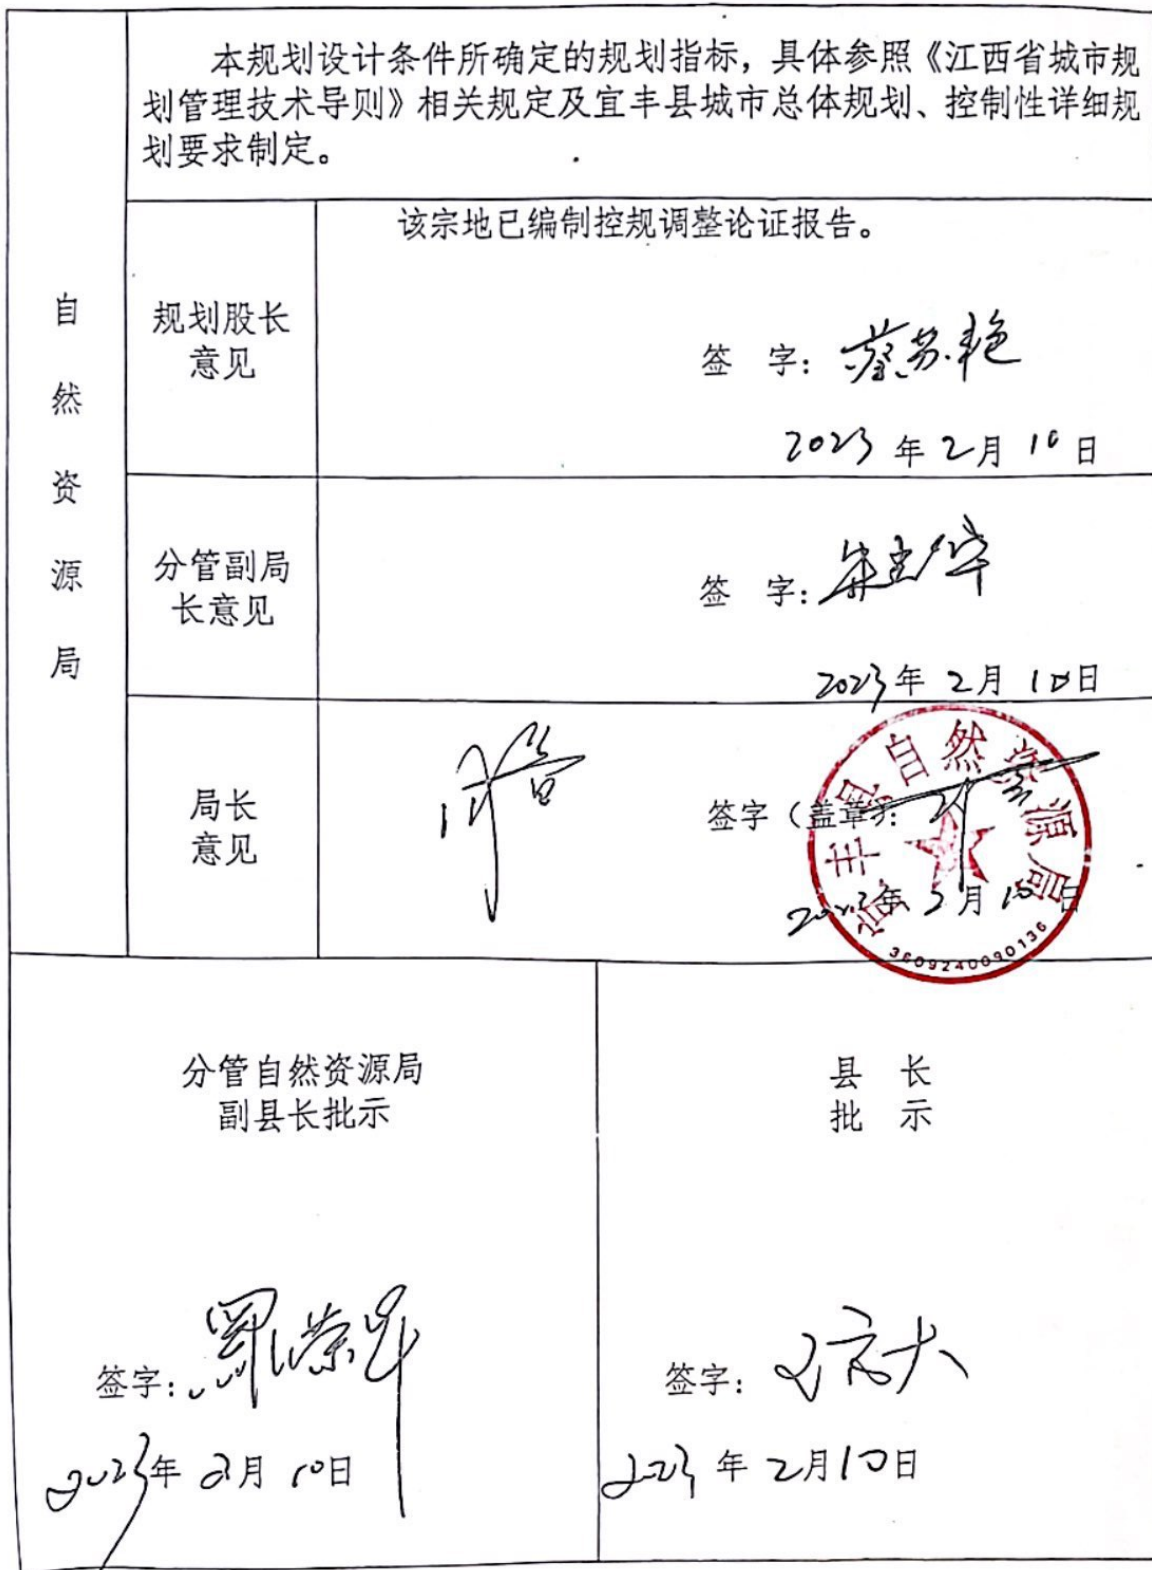 本规划设计条件所确定的规划指标，具体参照《江西省城市规
划管理技术导则》相关规定及宜丰县城市总体规划、控制性详细规
划要求制定。
自然资源局
规划股长
意见
该宗地已编制控规调整论证报告。
签 字：蔡苏艳
2023 年 2月 10 日
分管副局
长意见
签 字：
2023年 2月 10日
局长
意见
签字（盖章）：
2023年 2月 10日
宜丰县自然资源局
3609240090136
分管自然资源局
副县长批示
县 长
批 示
签字：
签字：
2023年 2月 10日
2023 年 2月10日